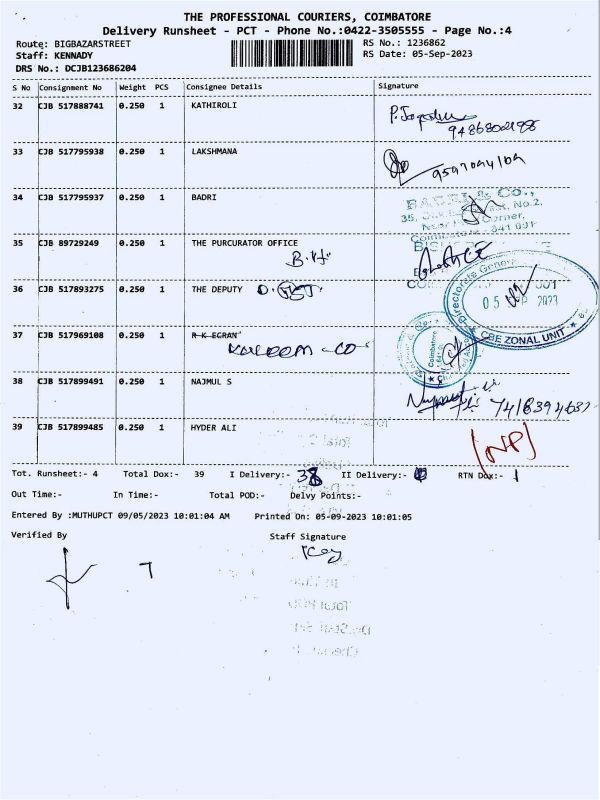 THE PROFESSIONAL COURIERS, COIMBATORE
Delivery Runsheet - PCT - Phone No.:0422-3505555 - Page No.:4
Route: BIGBAZARSTREET RS No.: 1236862
Staff: KENNADY RS Date: 05-Sep-2023
DRS No.: DCJB123686204
S No Consignment No Weight PCS Consignee Details Signature
32 CJB 517888741 0.250 1 KATHIROLI
33 CJB 517795938 0.250 1 LAKSHMANA
34 CJB 517795937 0.250 1 BADRI
35 CJB 89729249 0.250 1 THE PURCURATOR OFFICE
36 CJB 517893275 0.250 1 THE DEPUTY
05 SEP 2023
CBE ZONAL UNIT
37 CJB 517969108 0.250 1 R K EGRAN
Kareem - Co
Coimbatore
38 CJB 517899491 0.250 1 NAJMUL S
39 CJB 517899485 0.250 1 HYDER ALI
(NP)
Tot. Runsheet:- 4 Total Dox:- 39 I Delivery:- 38 II Delivery:- RTN Dox:- 1
Out Time:- In Time:- Total POD:- Delvy Points:-
Entered By :MUTHUPCT 09/05/2023 10:01:04 AM Printed On: 05-09-2023 10:01:05
Verified By Staff Signature